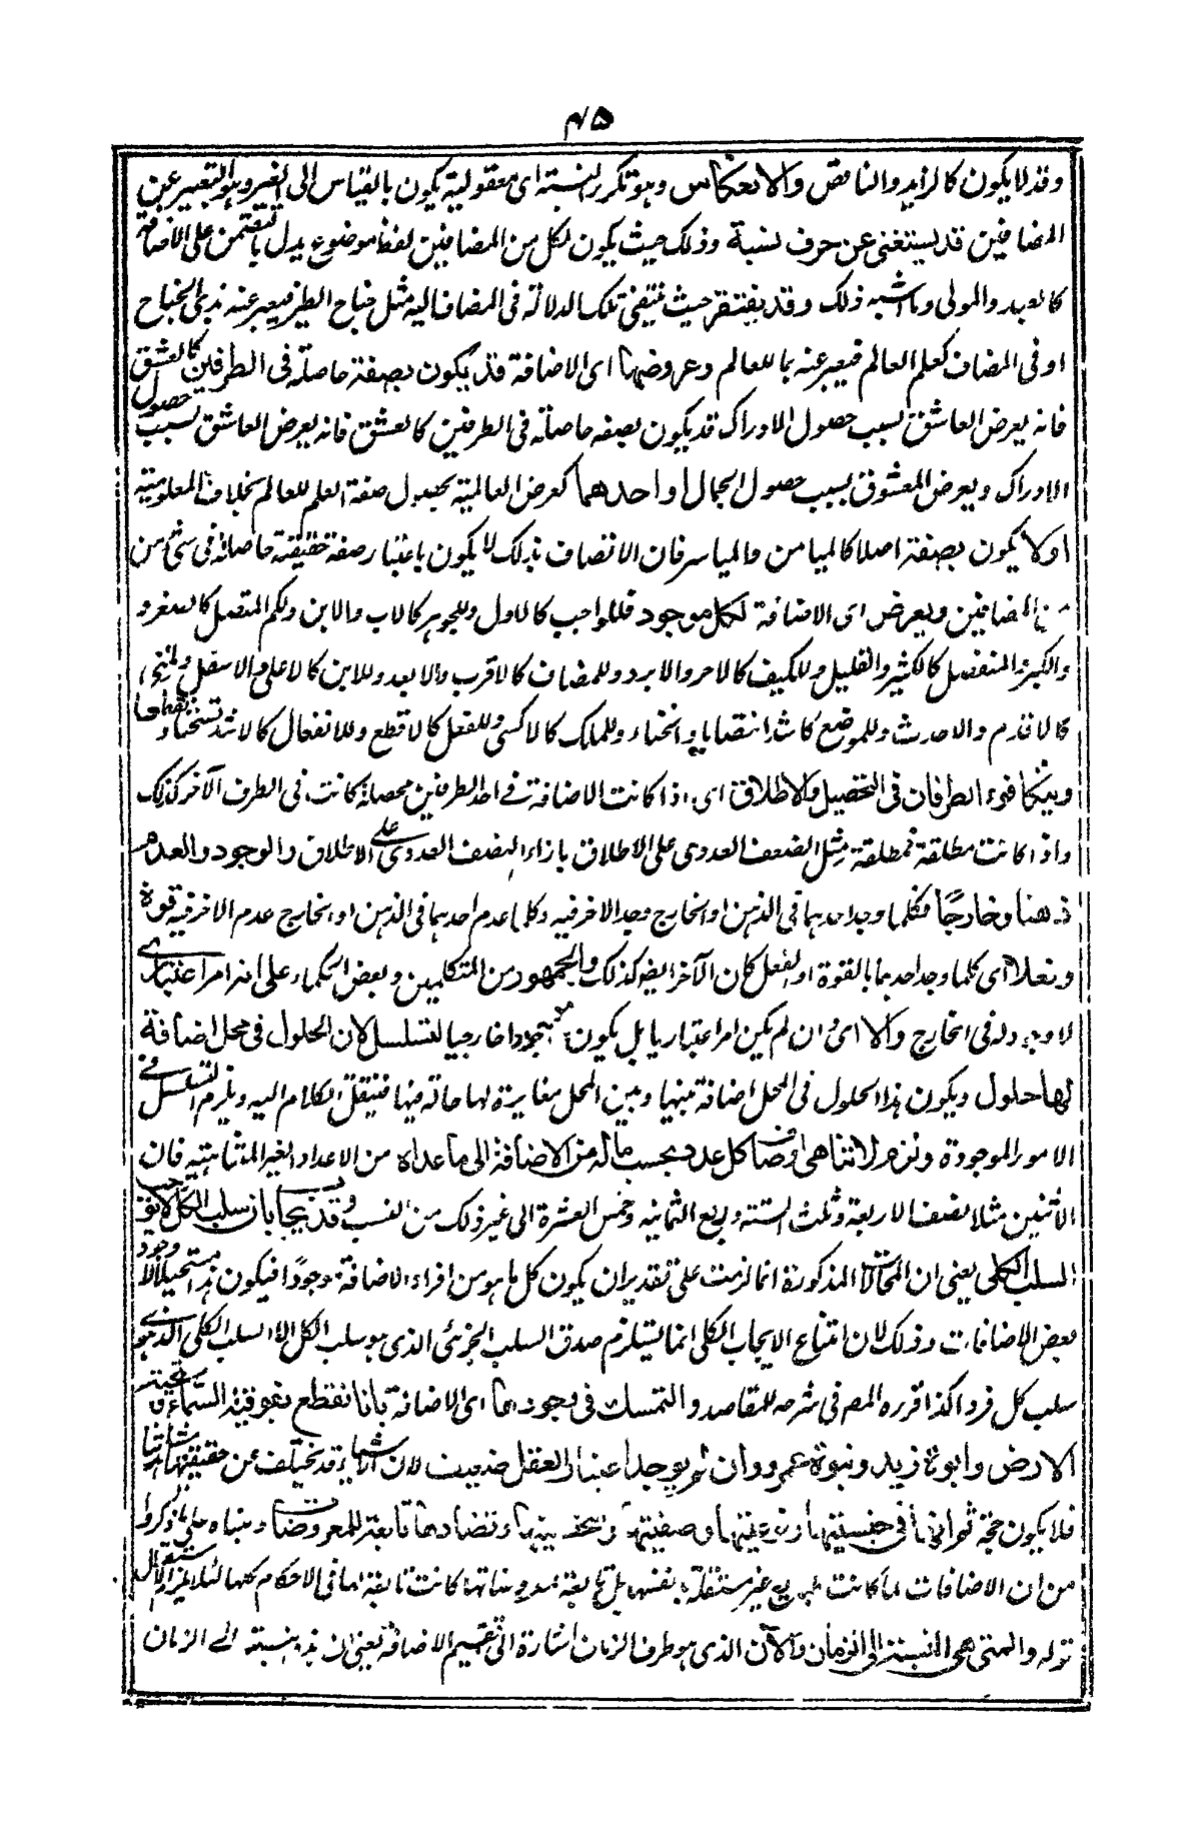 ٤٥
وقد لا يكون كالزايد والناقص والانعكاس وهو تكرر النسبة اى معقولية يكون بالقياس الى الغير وهو التعبير عن
المضافين قد يستغنى عن حرف نسبة وذلك حيث يكون لكل من المضافين لفظ موضوع يدل بالتضمن على الاضافة
كالعبد والمولى وما اشبه ذلك وقد يفتقر حيث ينتفى تلك الدلالة فى المضاف اليه مثل جناح الطير فيعبر عنه بذى الجناح
او فى المضاف كعلم العالم فيعبر عنه بما للعالم وعروضها اى الاضافة قد يكون بصفة حاصلة فى الطرفين كالعشق
فانه يعرض العاشق بسبب حصول الادراك قد يكون بصفة حاصلة فى الطرفين كالعشق فانه يعرض العاشق بسبب حصول
الادراك ويعرض المعشوق بسبب حصول الجمال او احدهما كعرض العالمية بحصول صفة العلم للعالم بخلاف المعلومية
او لا يكون بصفة اصلا كالميامن والمياسر فان الاتصاف بذلك لا يكون باعتبار صفة حقيقية حاصلة فى شئ من
المضافين ويعرض اى الاضافة لكل موجود فللواجب كالاول وللجوهر كالاب والابن وللكم المتصل كالصغير و
والكبير والمنفصل كالكثير والقليل وللكيف كالاحر والابرد وللمضاف كالاقرب والابعد وللاين كالاعلى والاسفل ولمتى
كالاقدم والاحدث وللوضع كاشد انتصابا وانحناء وللملك كالاكسى وللفعل كالاقطع وللانفعال كالاشد تسخنا وتقطعا
ويتكافوء الطرفان فى التحصيل والاطلاق اى اذا كانت الاضافة فے احد الطرفين محصلة كانت فى الطرف الآخر كذلك
واذا كانت مطلقة فمطلقة مثل الضعف العددى على الاطلاق بازاء النصف العددى على الاطلاق والوجود والعدم
ذهنا وخارجًا فكلما وجد احدهما فى الذهن او الخارج وجد الاخر فيه وكلما عدم احدهما فى الذهن او الخارج عدم الاخر فيه قوة
وفعلا اى كلما وجد احدهما بالقوة او الفعل كان الآخر ايضه كذلك والجمهور من المتكلمين وبعض الحكماء على انه امر اعتبارى
لا وجود له فى الخارج والا اى وان لم يكن امرا اعتباريا بل يكون موجودا خارجيا لتسلسل لان الحلول فى محل اضافة
لها حلول ويكون هذا الحلول فى المحل اضافة بينها وبين المحل مغايرة لها حالة فيها فننقل الكلام اليه ويلزم التسلسل فے
الامور الموجودة ولزم لا تناهى اوصاف كل عدد بحسب ماله من الاضافة الى ما عداه من الاعداد الغير المتناهية فان
الاثنين مثلا نصف الاربعة وثلث الستة وربع الثمانية وخمس العشرة الى غير ذلك من النسب وقد يجاب بان سلب الكل لا يوجب
السلب الكلى يعنى ان المحالات المذكورة انما لزمت على تقدير ان يكون كل ما هو من افراد الاضافة موجودًا فيكون هذا مستحيلا لا وجود
بعض الاضافات وذلك لان امتناع الايجاب الكلى انما يستلزم صدق السلب الجزئى الذى هو سلب الكل لا السلب الكلى الذى هو
سلب كل فرد كذا قرره المصـ فى شرحه للمقاصد والتمسك فى وجودها اى الاضافة بانا نقطع بفوقية السماء وتحتية
الارض وابوة زيد وبنوة عمرو وان لم يوجد اعتبار العقل ضعيف لان الاشياء قد تختلف عن
فلا يكون حجة ثم انها فى جنسيتها ونوعيتها وصفيتها وشخصيتها وتضادها تابعة للمعروضات وبناه على ما ذكروا
من ان الاضافات لما كانت غير مستقلة بنفسها بل تابعة لمعروضاتها كانت تابعة لها فى الاحكام كلها لئلا يلزم الاستقلال
قوله والمتى هى النسبة الى الزمان والآن الذى هو طرف الزمان اشارة الى تقسيم الاضافة يعنى ان هذه نسبته الے الزمان